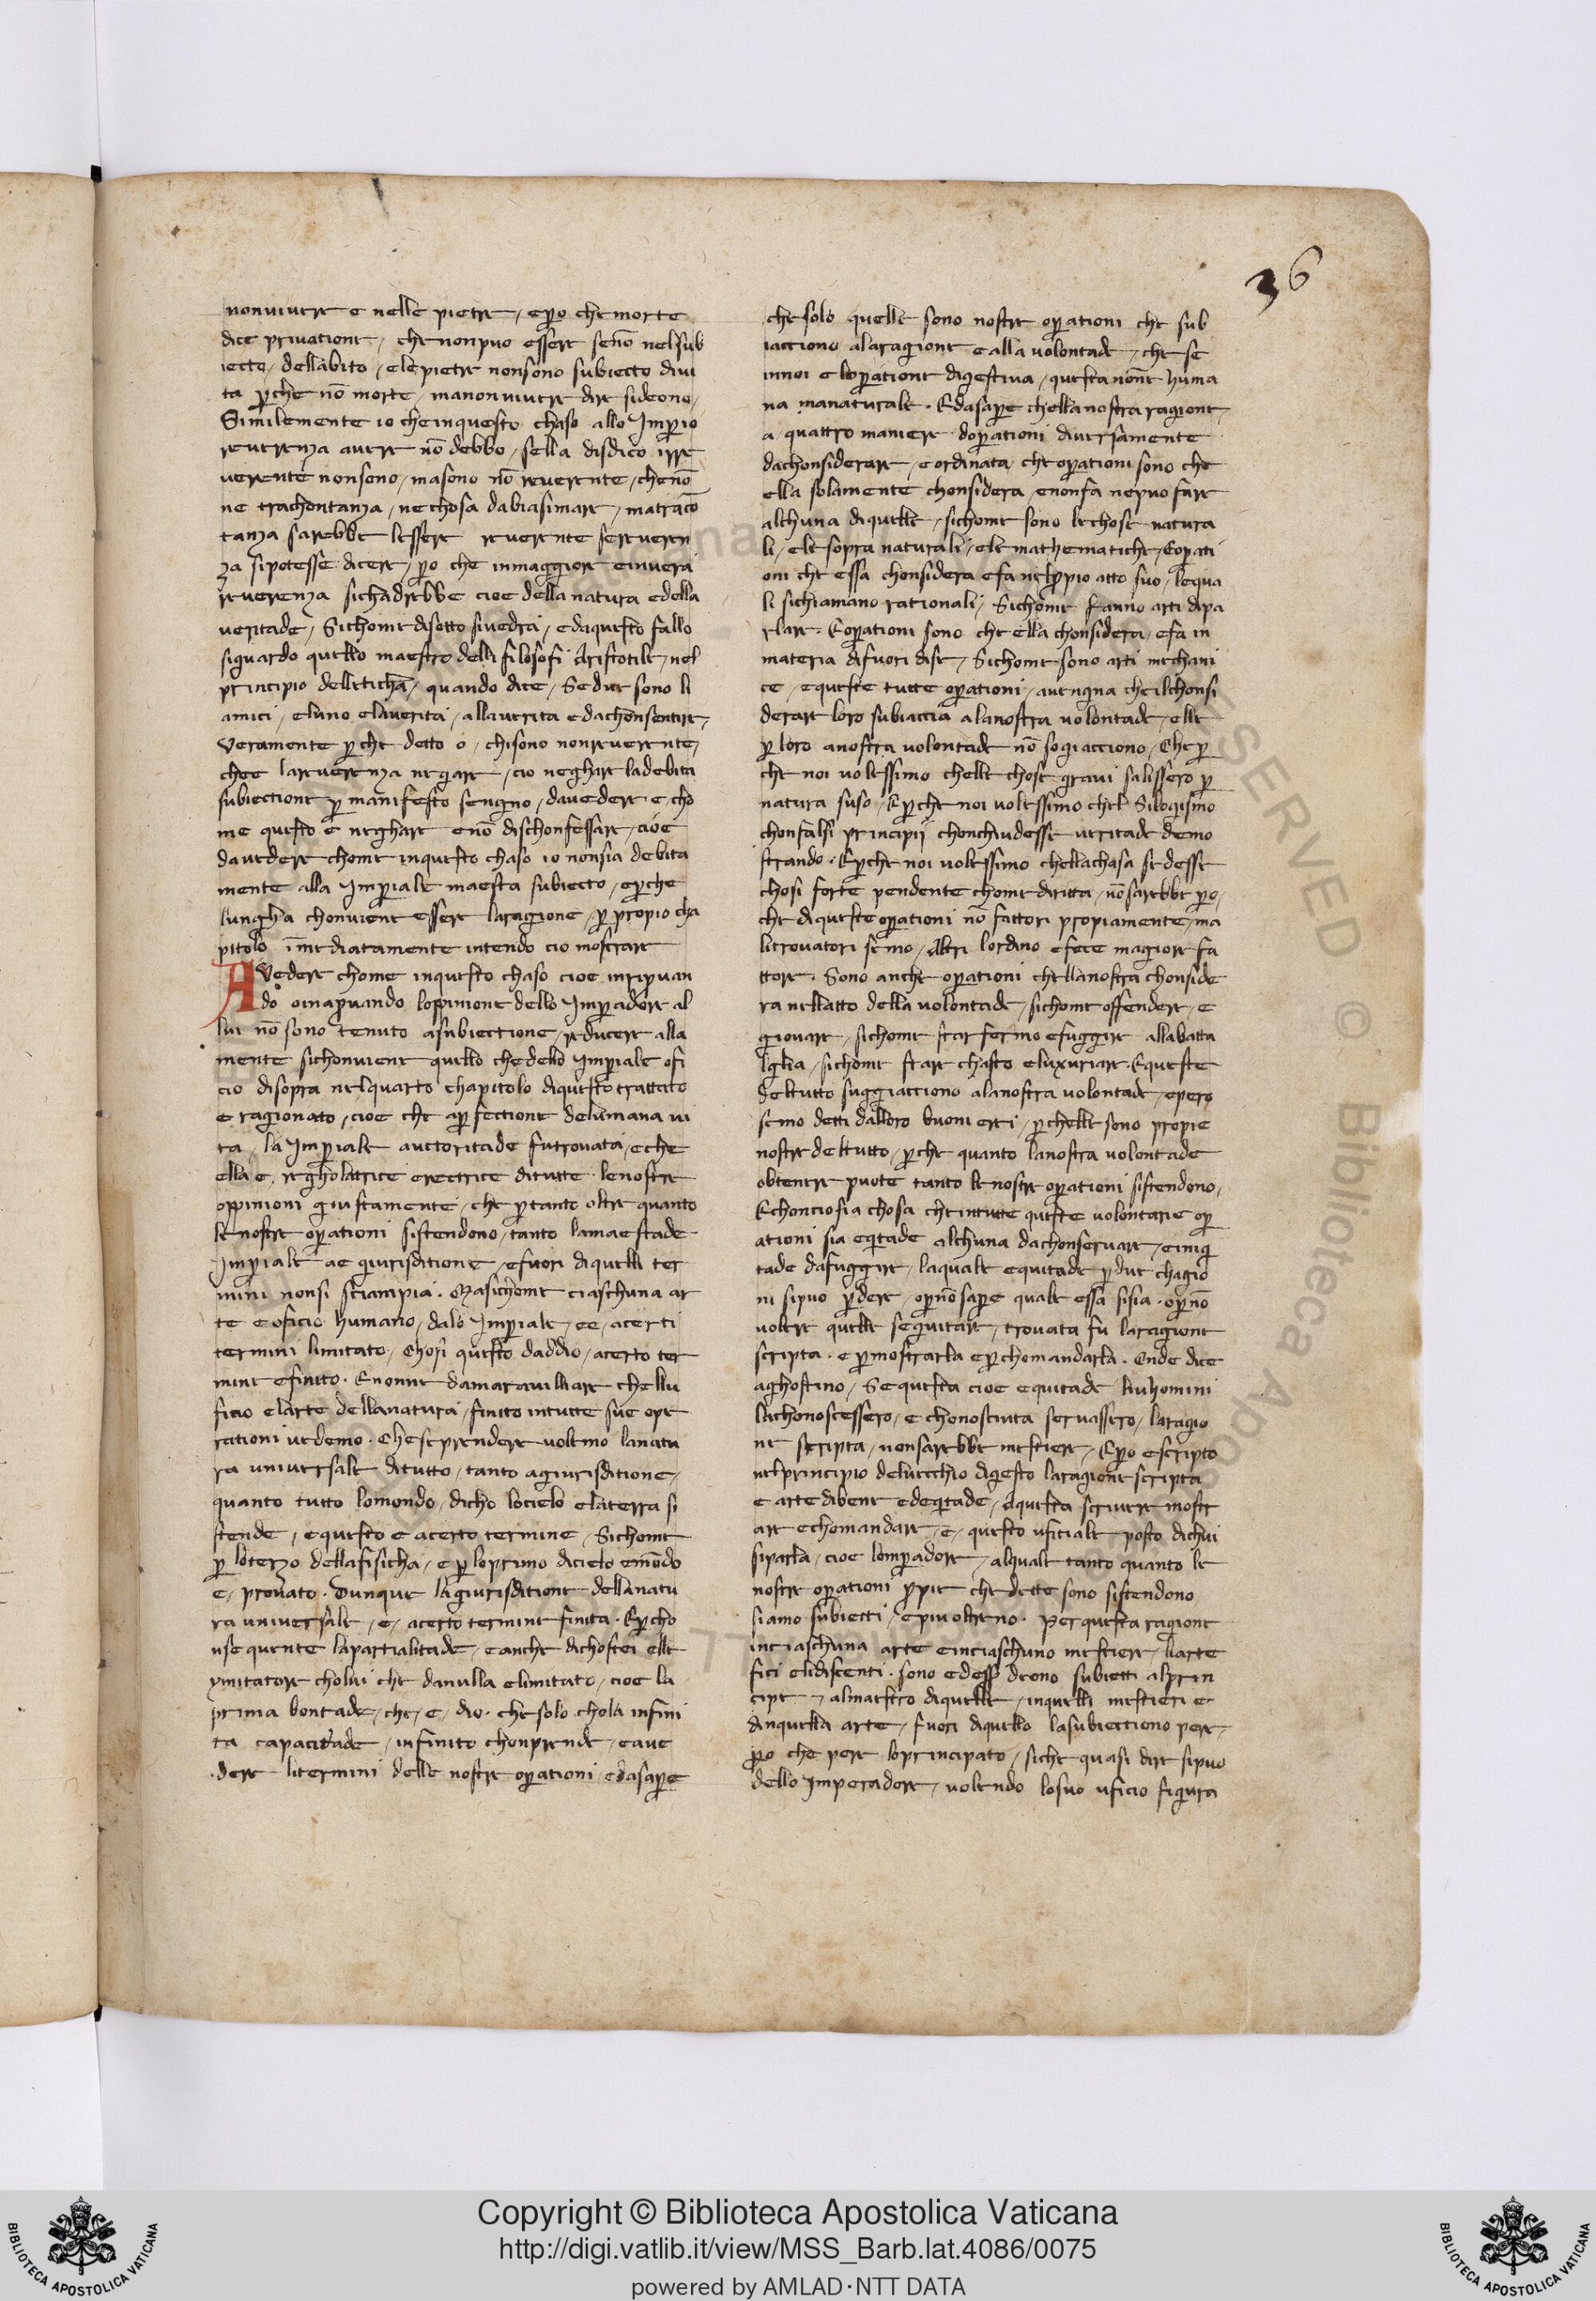 36
nonvivere e nelle pietre / epero che morte
dice privatione / che non puo essere senō nel sub
iecto / dell abito / ele pietre non sono subiecto di vi
ta perche nō morte / ma non vivere dir si deono /
Similemente io che in questo chaso allo Imperio
reverenza avere nō debbo / sella disdico irre
verente non sono / ma sono nō reverente / che nō
ne trachontanza / ne chosa da biasimare / ma tracō
tanza sarebbe lessere reverente se reveren
za si potesse dicere / pero che in maggiore e in vera
reverenza si chadrebbe cioe della natura e della
veritade / Sichome di sotto si vedra / e da questo fallo
si guardo quello maestro delli filosofi Aristotile / nel
principio delletichā / quando dice / Se due sono li
amici / eluno e la verita / alla verita e da chonsentire /
Veramente perche detto o / chi sono non reverente /
chee la reverenza negare / cio neghare la debita
subiectione per manifesto sengno / da vedere e cho
me questo e neghare e nō dischonfessare / cioe
da vedere chome in questo chaso io non sia debita
mente alla Imperiale maesta subiecto / e perche
lungha chonviene essere la ragione / per propio cha
pitolo īmediatamente intendo cio mostrare
A Vedere chome in questo chaso cioe in ripruovan
do o in apruovando loppinione dello Imperadore al
lui nō sono tenuto a subiectione / reducere alla
mente si chonviene quello che dello Imperiale ofi
cio di sopra nel quarto chapitolo di questo trattato
e ragionato / cioe che a perfectione de lumana vi
ta / la Imperiale auctoritade fu trovata / e che
ella e / regholatrice e rectrice di tutte le nostre
oppinioni giustamente / che per tanto oltre quanto
le nostre operationi si stendono / tanto la maestade
Imperiale ae giurisditione / e fuori di quelli ter
mini non si sciampia . Ma sichome ciaschuna ar
te e oficio humano / dalo Imperiale / ee / a certi
termini limitato / Chosi questo da ddio / a certo ter
mine e finito . E nonne da maravilliare che llu
ficio e larte della natura / finito in tutte sue ope
rationi vedemo . Che se prendere volemo la natu
ra universale di tutto / tanto a giurisditione /
quanto tutto lo mondo / dicho lo cielo e la terra si
stende / e questo e a certo termine / Sichome
per lo terzo della fisicha / e per lo primo di cielo e mōdo
e / provato . Dunque la giurisditione della natu
ra universale / e / a certo termine finita . E per cho
use quente la partialitade / e anche di chostei elle
ymitatore cholui che da nulla e limitato / cioe la
prima bontade / che / e / dio . che solo chola infini
ta capacitade / infinito chonprende / e a ve
dere li termini delle nostre operationi / e da sapere
che solo quelle sono nostre operationi che sub
iacciono ala ragione e alla volontade / che se
in noi e loperatione digestiva / questa none huma
na ma naturale . E da sapere che lla nostra ragione /
a quattro maniere doperationi diversamente
da chonsiderare / e ordinata / che operationi sono che
ella solamente chonsidera / e non fa ne puo fare
alchuna di quelle / sichome sono le chose natura
li / e le sopra naturali / e le mathematiche / E operati
oni che essa chonsidera e fa nel propio atto suo / lequa
li si chiamano rationali / Sichome fanno arti di pa
rlare . E operationi sono che ella chonsidera / e fa in
materia di fuori di se / Sichome sono arti mechani
ce / e queste tutte operationi / avengna che il chonsi
derare loro subiaccia a la nostra volontade / elle
per loro a nostra volontade nō sogiacciono / Che per
che noi volessimo chelle chose gravi salissero per
natura suso / E perche noi volessimo chel Silogismo
chon falsi principij chonchiudesse veritade demo
strando . E perche noi volessimo chella chasa sedesse
chosi forte pendente chome diritta / nō sarebbe pero /
che di queste operationi nō fattori propiamente / ma
li trovatori semo / Altri lordino e fece magiore fa
ttore . Sono anche operationi che lla nostra chonside
ra nell atto della volontade / sichome offendere / e
giovare / sichome star fermo e fuggire alla batta
lglia / sichome stare chasto e luxuriare . E queste
del tutto suggiacciono a la nostra volontade / e pero
semo detti dalloro buoni e rei / perchelle sono propie
nostre del tutto / perche quanto la nostra volontade
obtenere puote tanto le nostre operationi si stendono /
E choncio sia chosa che in tutte queste volontarie oper
ationi sia eqitade alchuna da chonservare / e iniqi
tade da fuggire / la quale equitade per due chagio
ni si puo perdere / o per nō sapere quale essa si sia . o per nō
volere quelle sequitare / trovata fu la ragione
scripta . e per mostrarla e per chomandarla . Onde dice
aghostino / Se questa cioe equitade li uhomini
la chonoscessero / e chonosciuta servassero / la ragio
ne scripta / non sarebbe mestiere / E pero e scripto
nel principio del vecchio digesto la ragione scripta
e arte di bene e deqitade / A questa scrivere mostr
are e chomandare / e / questo uficiale posto di chui
si parla / cioe lomperadore / al quale tanto quanto le
nostre operationi propie che dette sono si stendono
siamo subiecti / e piu oltre no . Per questa ragione
in ciaschuna arte e in ciaschuno mestiere / li arte
fici e li discenti . sono ed esser deono subietti al prin
cipe / al maestro di quelle / in quelli mestieri e
di in quella arte / fuori di quello la subiectione pere /
pero che pere lo principato / siche quasi dire si puo
dello Imperadore / volendo lo suo uficio figura
Copyright © Biblioteca Apostolica Vaticana
http://digi.vatlib.it/view/MSS_Barb.lat.4086/0075
powered by AMLAD·NTT DATA
BIBLIOTECA APOSTOLICA VATICANA
BIBLIOTECA APOSTOLICA VATICANA